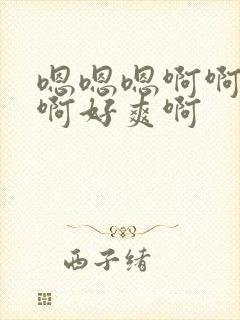 嗯嗯嗯啊啊
啊好爽啊
西子绪